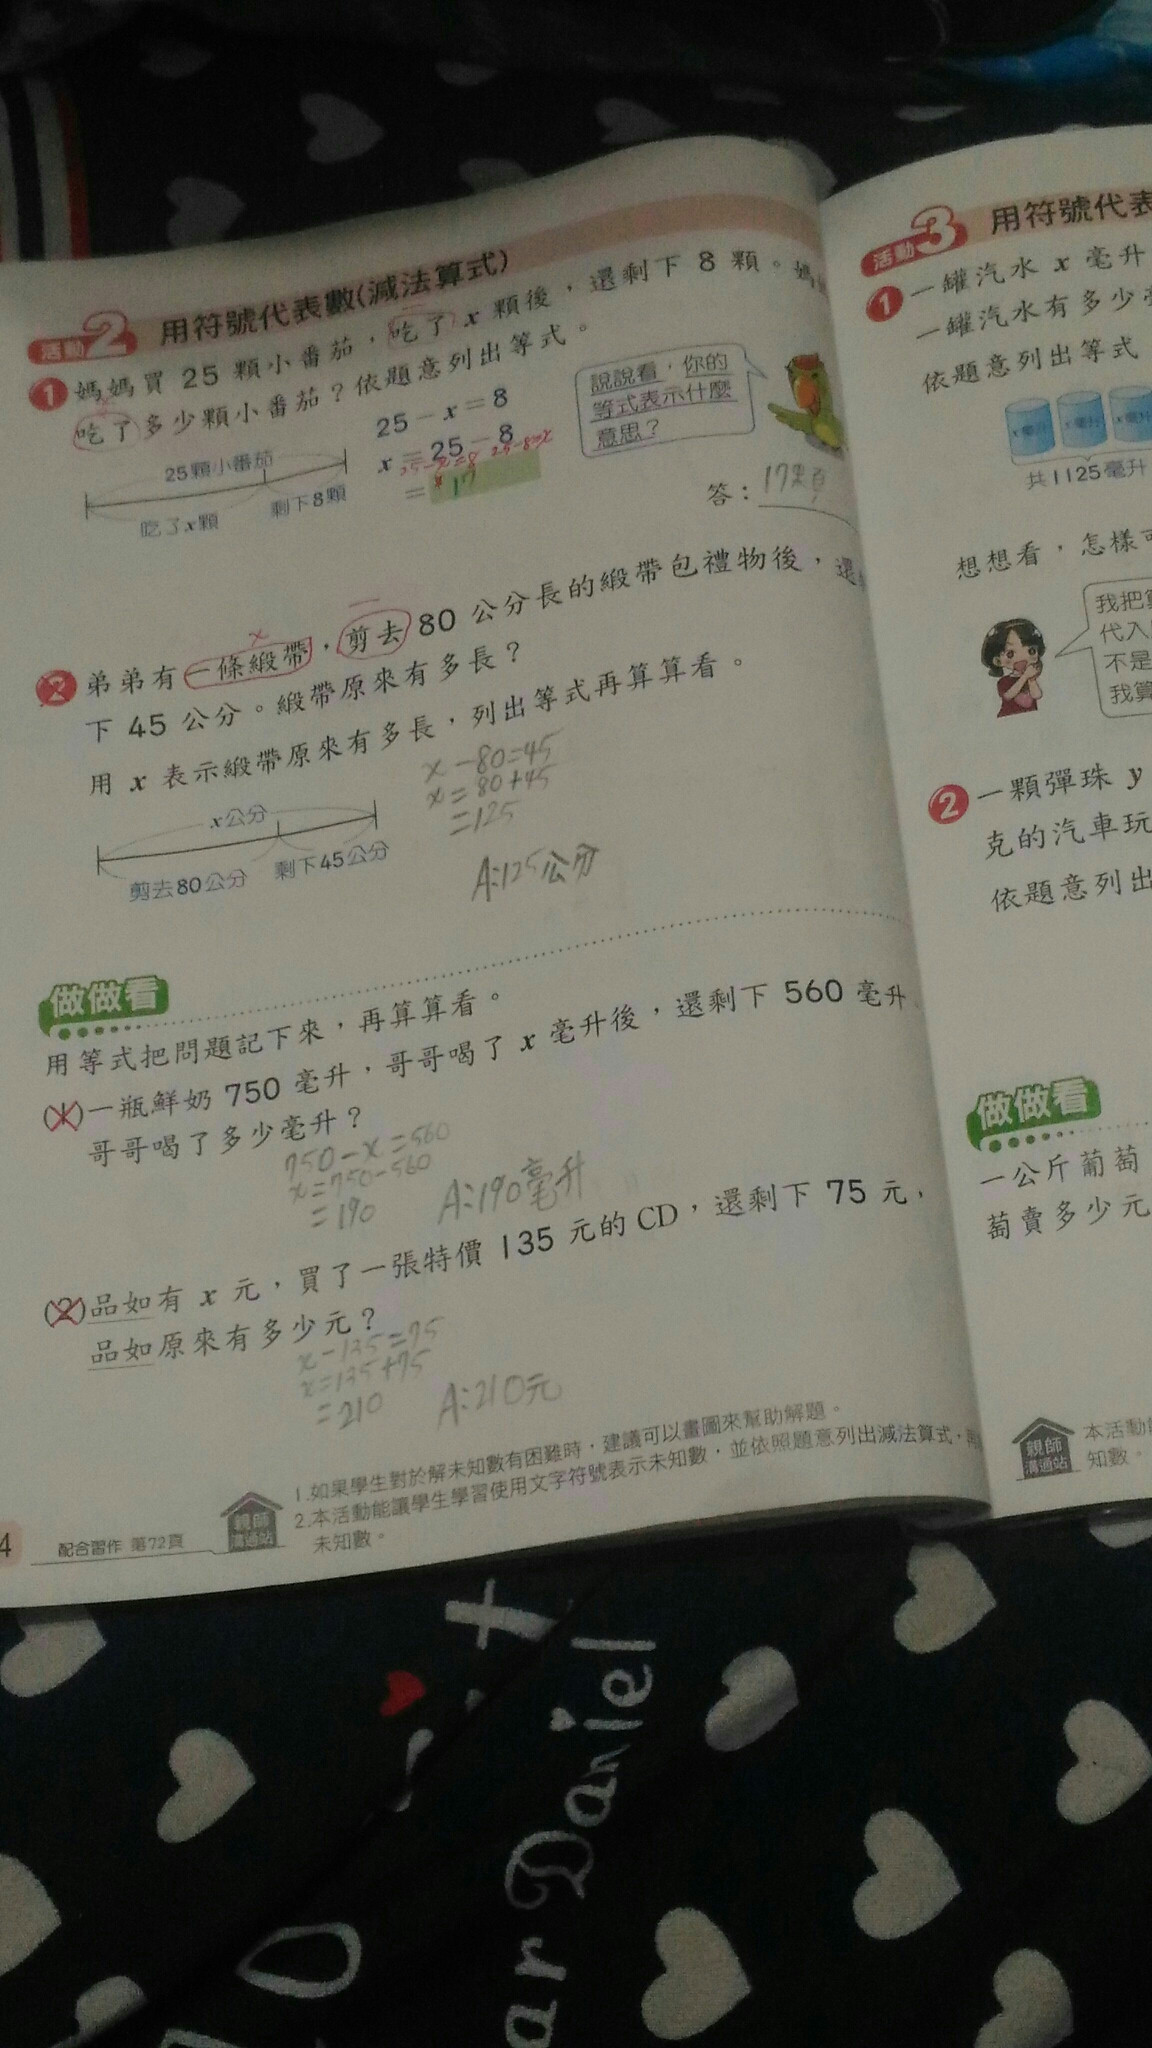 活動2 用符號代表數(減法算式)
1 媽媽買 25 顆小番茄,吃了 x 顆後,還剩下 8 顆。媽
吃了多少顆小番茄?依題意列出等式。
25 - x = 8
x = 25 - 8
25-x=8 25-8=x
= 17
25顆小番茄
吃了x顆
剩下8顆
說說看,你的
等式表示什麼
意思?
答:17顆
x
2 弟弟有一條緞帶,剪去 80 公分長的緞帶包禮物後,還
下 45 公分。緞帶原來有多長?
用 x 表示緞帶原來有多長,列出等式再算算看。
x-80=45
x=80+45
=125
A:125公分
x公分
剪去80公分
剩下45公分
做做看
用等式把問題記下來,再算算看。
(1)一瓶鮮奶 750 毫升,哥哥喝了 x 毫升後,還剩下 560 毫升
哥哥喝了多少毫升?
750-x=560
x=750-560
=190
A:190毫升
(2)品如有 x 元,買了一張特價 135 元的 CD,還剩下 75 元,
品如原來有多少元?
x-135=75
x=135+75
=210
A:210元
親師
溝通站
1.如果學生對於解未知數有困難時,建議可以畫圖來幫助解題。
2.本活動能讓學生學習使用文字符號表示未知數,並依照題意列出減法算式,再
未知數。
4 配合習作 第72頁
活動3 用符號代表
1 一罐汽水 x 毫升
一罐汽水有多少
依題意列出等式
x毫升 x毫升 x毫升
共1125毫升
想想看,怎樣可
我把
代入
不是
我算
2 一顆彈珠 y
克的汽車玩
依題意列出
做做看
一公斤葡萄
萄賣多少元
親師
溝通站
本活動
知數。
ar Daniel